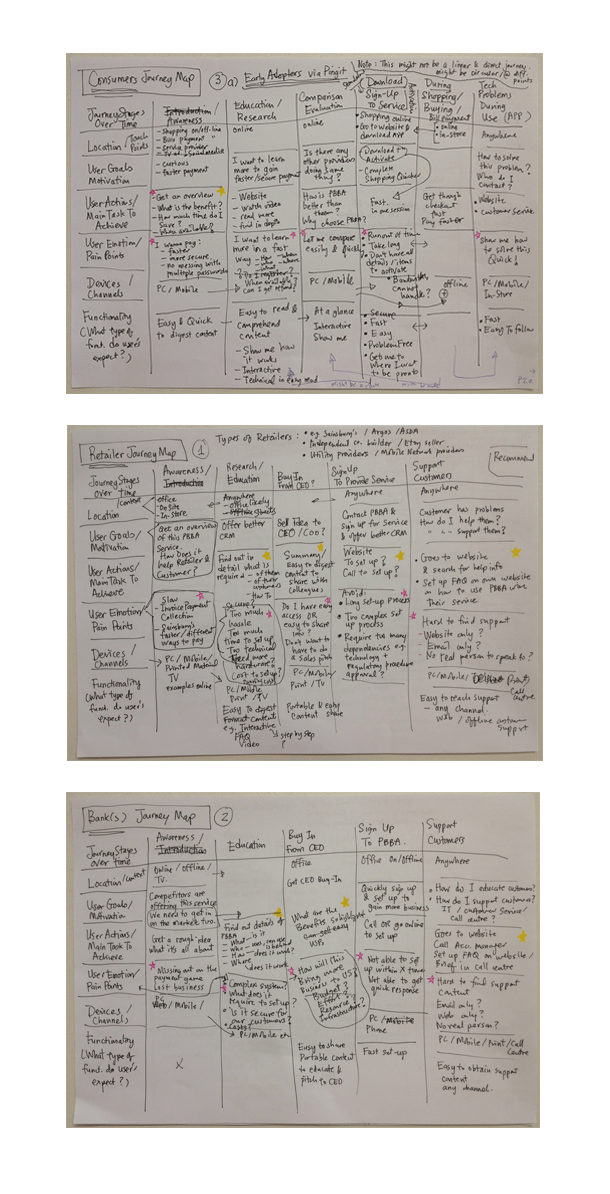 Consumers Journey Map
3 a) Early Adopters via Pingit
Note: This might not be a linear & direct journey
might be circular / to diff.
points
Journey Stages
Over Time
Introduction /
Awareness
Education /
Research
Comparison
Evaluation
Download
Sign-Up
To Service
During
Shopping /
Buying /
Bill payment
Tech
Problems
During
Use (APP)
Location / Touch
Points
Shopping on/off-line
Bill payment
service provider
TV ad, social media
online
online
Shopping online
Go to website &
download APP
online
In-store
Anywhere
User Goals
Motivation
curious
faster payment
I want to learn
more to gain
faster/secure payment
Is there any
other providers
doing same
thing?
Download to
Activate
Complete
Shopping Quicker
How to solve
this problem?
Who do I
Contact?
User Actions/
Main Task To
Achieve
Get an overview
What is the benefit?
How much time do I
Save?
When available?
Website
Watch video
read more
find in depth
How is PBBA
better than
them?
Why choose PBBA?
Fast.
in one session
Get through
checkout
fast
Pay faster
Website
Customer Service
User Emotion/
Pain Points
I wanna pay:
faster
more secure.
no messing with
multiple passwords
I want to learn
more in a fast
way
Do I register?
When available?
Can I get refund?
Let me compare
easily & quickly
Run out of time
Take long
Don't have all
details / items
to activate
Bandwidth
cannot
handle?
Show me how
to solve this
Quick!
Devices /
Channels
PC / Mobile
PC / Mobile
offline
PC/Mobile/
In-Store
Functionality
(What type of
func. do user's
expect?)
Easy & Quick
to digest content
Easy to read &
comprehend
content
Show me how
it works
Interactive
Technical in easy mod
At a glance
Interactive
Show me
Secure
Fast
Easy
Problem Free
Gets me to
where I want
to be pronto
Fast
Easy to follow
P.T.O.
Retailer Journey Map
1
Types of Retailers:
e.g Sainsbury's / Argos / ASDA
Independent co. builder / Etsy seller
Utility providers / Mobile Network providers
Journey Stages
Over time
Awareness /
Introduction
Research /
Education
Buy In
From CEO?
Sign Up
To Provide Service
Support
Customers
Recommend
/context
Location
Office
On Site
In-Store
Anywhere
Office likely
Anywhere
Anywhere
User Goals/
Motivation
Get an overview
of this PBBA
Service.
How Does it
help Retailer &
Customer?
Offer better
CRM
Sell Idea to
CEO / COO?
Contact PBBA &
sign up for Service
& offer better CRM
Customer has problems
How do I help them?
" " " support them?
User Actions/
Main Task To
Achieve
Find out in
detail what is
required
How To
Summary/
Easy to digest
content to
share with
colleagues
Website
To set up?
Call to set up?
Goes to website
& search for help info
Set up FAQ on own website
on how to use PBBA with
their service
User Emotion/
Pain Points
Slow
Invoice Payment
Collection
Sainsbury's
faster/different
ways to pay
Secure?
Too much
hassle
Too much
time to set up
Too technical
Need more
hardware?
Cost to set up?
Do I have easy
access OR
easy to share
info?
Don't want to
have to do
a Sales pitch
Avoid:
Long set-up Process
Too Complex set
up process
Require too many
dependencies e.g.
technology +
regulatory procedure
approval?
Hard to find support
Website only?
Email only?
No real person to speak to?
Devices /
Channels
PC / Mobile/
Printed Material
TV
examples online
PC/Mobile
Print / TV
PC/Mobile/
Print / TV
PC/Mobile/
Call
centre
Functionality
(What type of
func. do user's
expect?)
Easy To Digest
Format Content
e.g. Interactive
FAQ
Video
step by step
Portable &
Content share
Easy to reach support
any channel
Web / offline customer
support
Bank(s) Journey Map
2
Journey Stages
Over time
Awareness /
Introduction
Education
Buy In
From CEO
Sign Up
To PBBA.
Support
Customers
Location/Context
Online / Offline /
TV.
Office
Office On/Offline
Anywhere
User Goals/
Motivation
Competitors are
offering this service
We need to get in
on the market too.
Get CEO Buy-In
Quickly sign up
& set up to
gain more business
How do I educate customer?
How do I support customer?
IT / customer Service/
Call centre?
User Actions/
Main Task To
Achieve
Get a rough idea
what it's all about
Find out details of
PBBA
What is it
How does it work?
Where
does it work
What are the
Benefits
USPs
Call OR go online
to set up
Goes to website
Call Acc. manager
Set up FAQ on website/
Brief in call centre
User Emotion/
Pain Points
Missing out on the
payment game
Lost business
Complex system?
What does it
require to set up?
is it secure for
our customers?
Costs?
How will this
Bring more
Business to US?
Budget?
Effort?
Resource?
Infrastructure?
Not able to set
up within X time
Not able to get
quick response
Hard to find support
Content
Email only?
Web only?
No real person?
Devices /
Channels
PC
Web / Mobile /
PC/Mobile etc
PC / Mobile
Phone
PC / Mobile / Print / Call
Centre
Functionality
(What type of
func. do user's
expect?)
X
Easy to share
Portable content
to educate &
pitch to CEO
Fast set-up
Easy to obtain support
content
any channel.